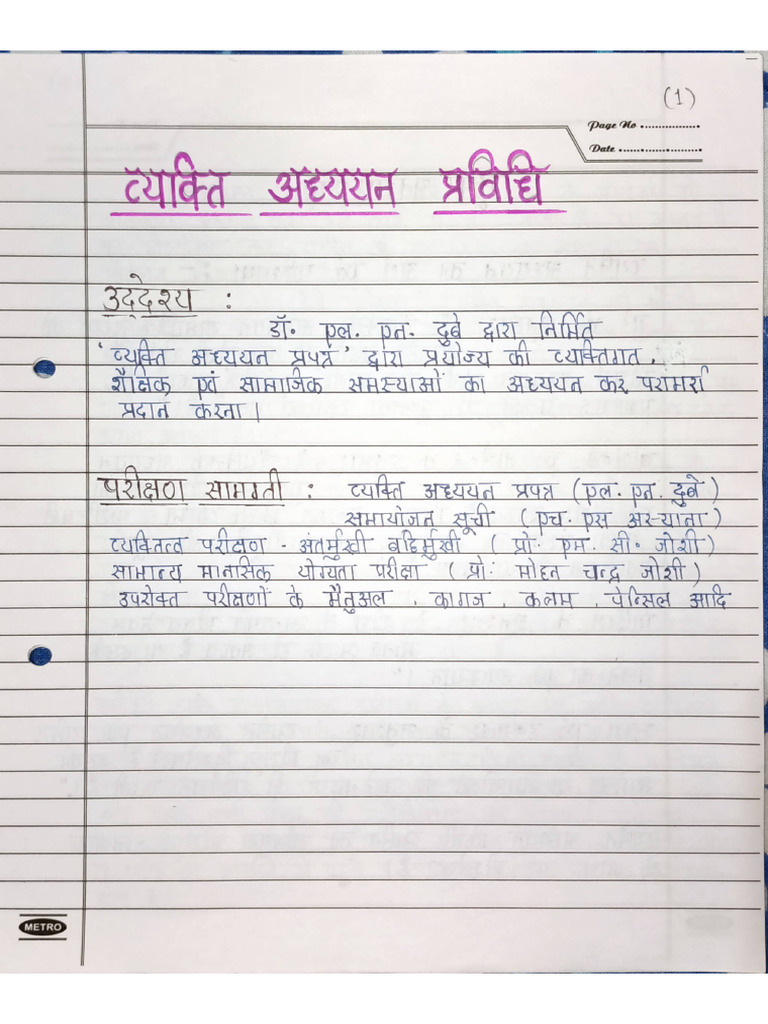 (1)
Page No
Date
व्यक्ति अध्ययन प्रविधि
उद्देश्य :
डॉ. एल. एन. दुबे द्वारा निर्मित
'व्यक्ति अध्ययन प्रपत्र' द्वारा प्रयोज्य की व्यक्तिगत,
शैक्षिक एवं सामाजिक समस्याओं का अध्ययन कर परामर्श
प्रदान करना।
परीक्षण सामग्री : व्यक्ति अध्ययन प्रपत्र (एल. एन. दुबे)
समायोजन सूची (एच. एस अस्थाना)
व्यक्तित्व परीक्षण - अंतर्मुखी बहिर्मुखी (प्रो. एम. सी. जोशी)
सामान्य मानसिक योग्यता परीक्षा (प्रो. मोहन चन्द्र जोशी)
उपरोक्त परीक्षणों के मैनुअल, कागज, कलम, पेन्सिल आदि
METRO